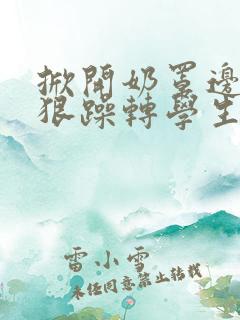 掀開奶罩邊
狠躁轉學生
雷小雪
未经同意禁止转载